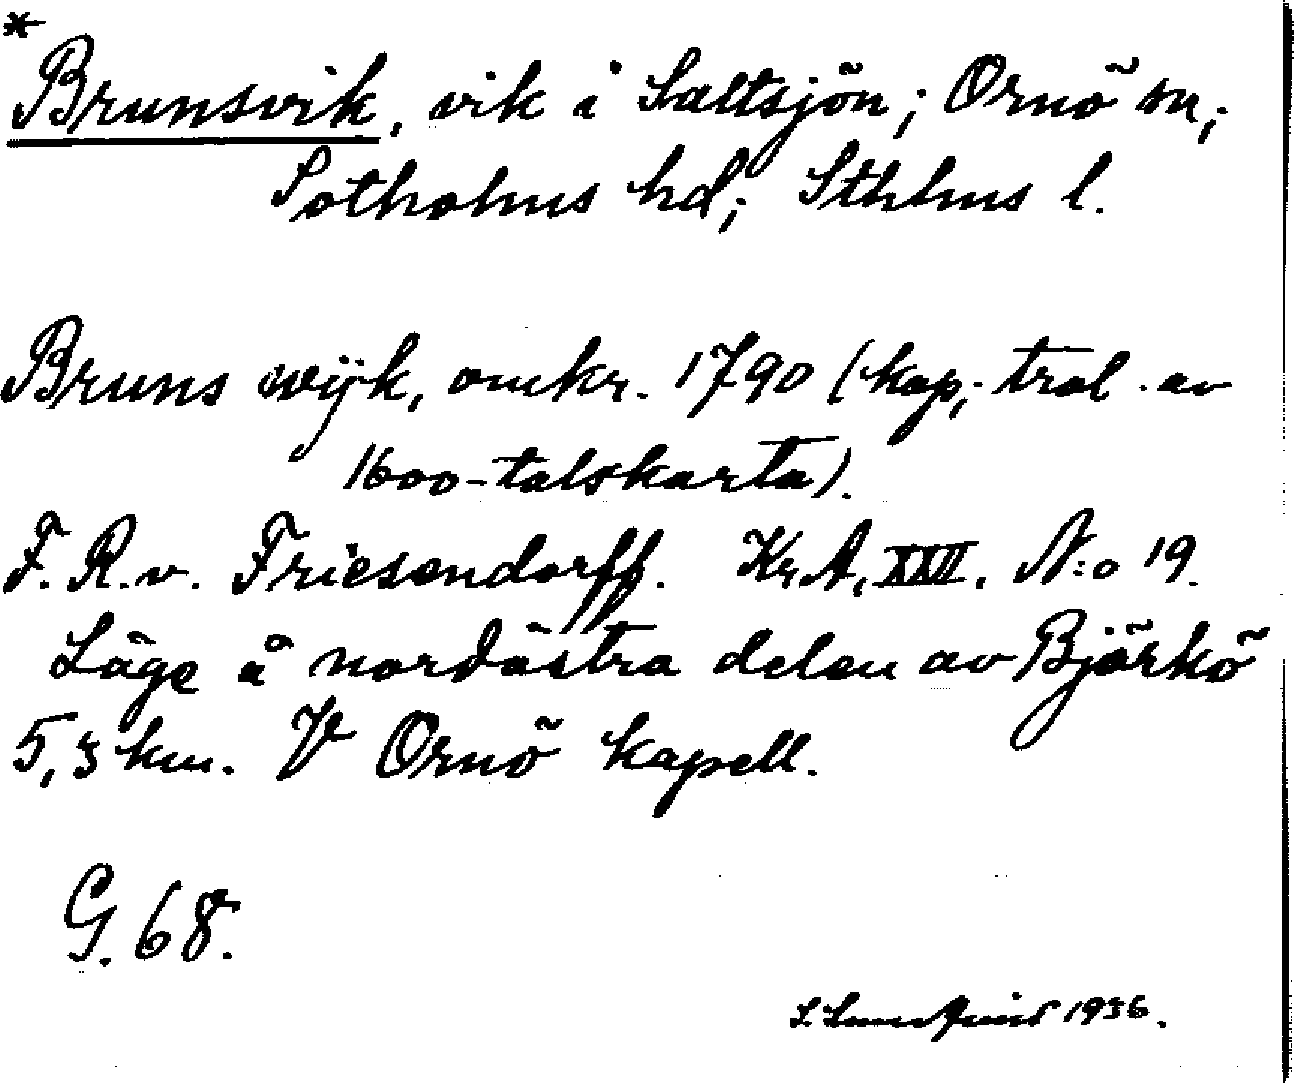 *
Brunsvik, vik i Saltsjön; Ornö sn;
Sotholms hd; Sthlms l.
Bruns wijk, omkr. 1790 (kap; trol. av
1600-talskarta).
F. R. v. Friesendorff. Kr. A, XXII. N:o 19.
Läge å nordöstra delen av Björkö
5,3 km. V Ornö kapell.
G. 68.
S. Lundquist 1936.